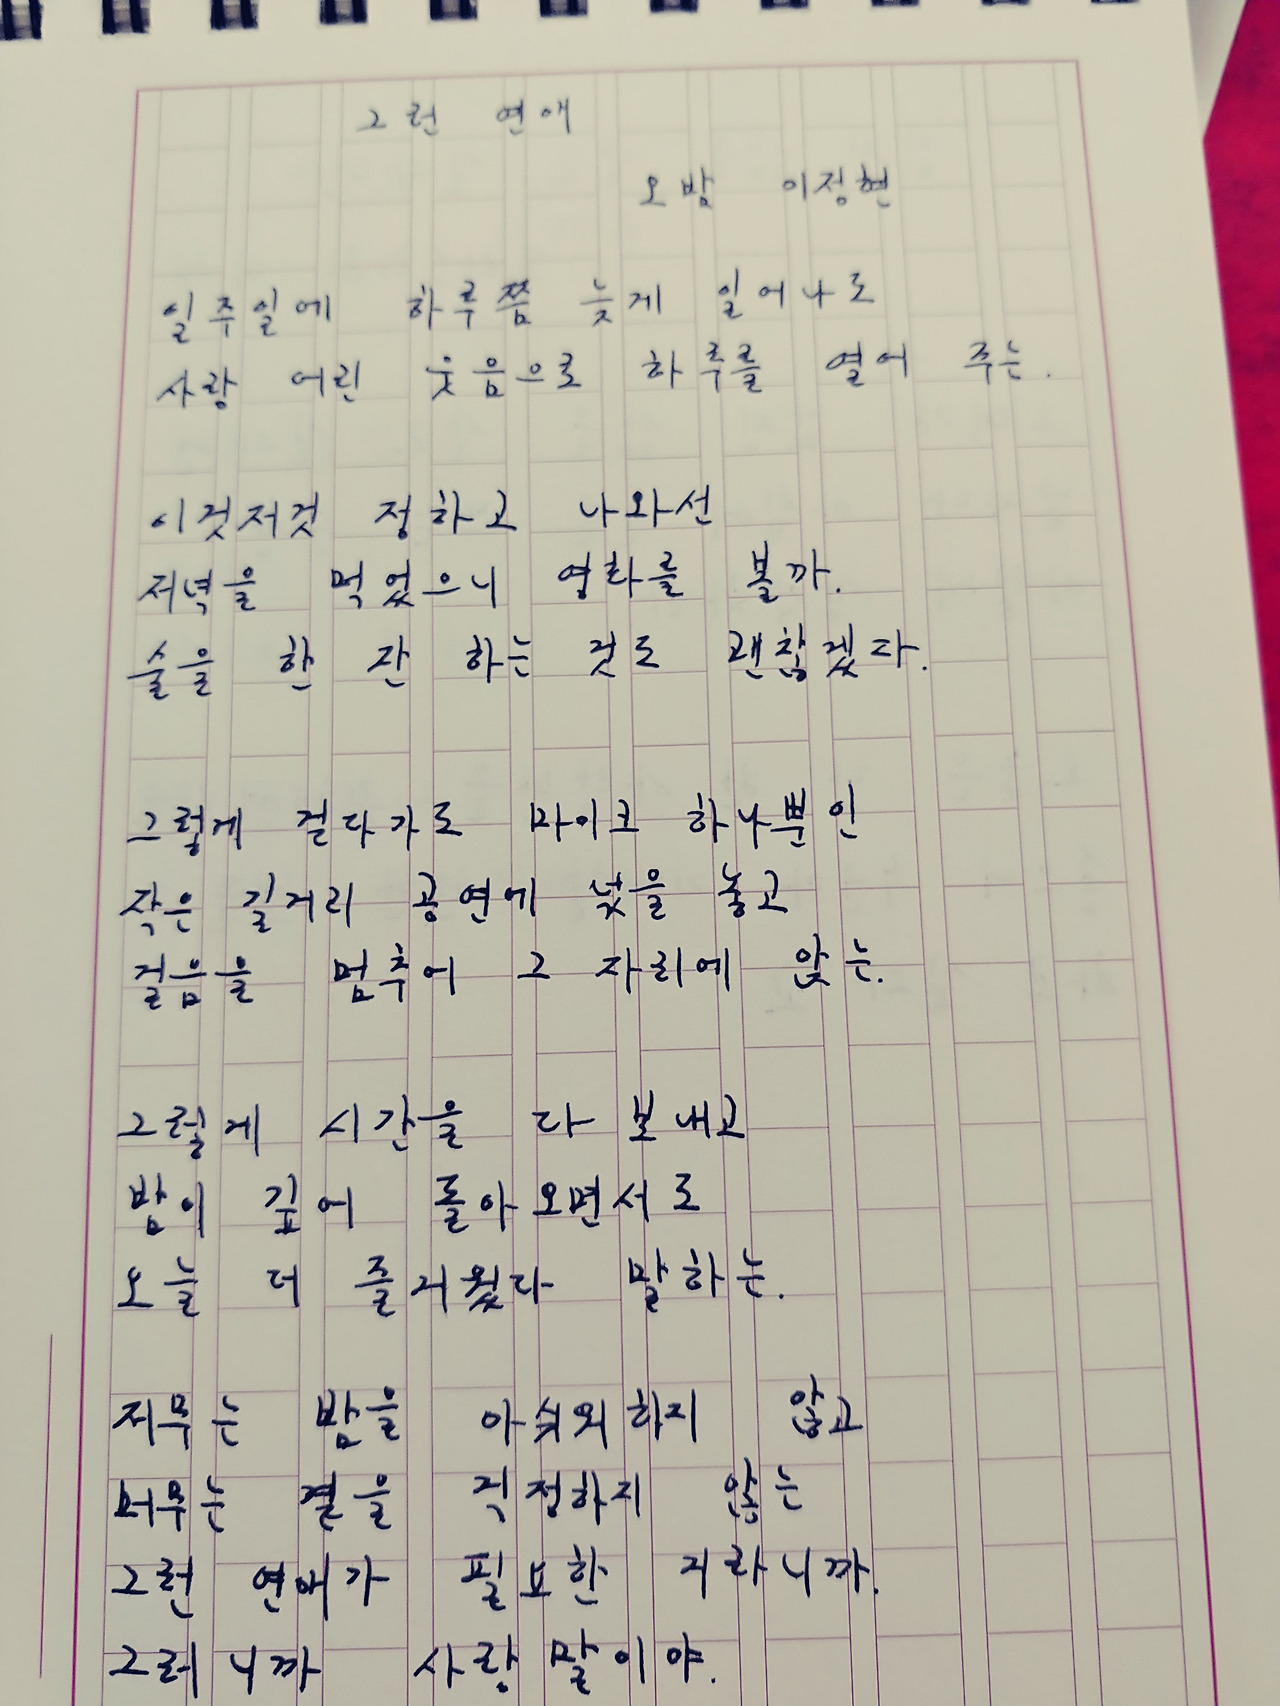 그런 연애
오밤 이정현
일주일에 하루쯤 늦게 일어나도
사랑 어린 웃음으로 하루를 열어 주는.
이것저것 정하고 나와선
저녁을 먹었으니 영화를 볼까.
술을 한 잔 하는 것도 괜찮겠다.
그렇게 걷다가도 마이크 하나뿐인
작은 길거리 공연에 넋을 놓고
걸음을 멈추어 그 자리에 앉는.
그렇게 시간을 다 보내고
밤이 깊어 돌아오면서도
오늘 더 즐거웠다 말하는.
저무는 밤을 아쉬워하지 않고
머무는 곁을 걱정하지 않는
그런 연애가 필요한 거라니까.
그러니까 사랑말이야.